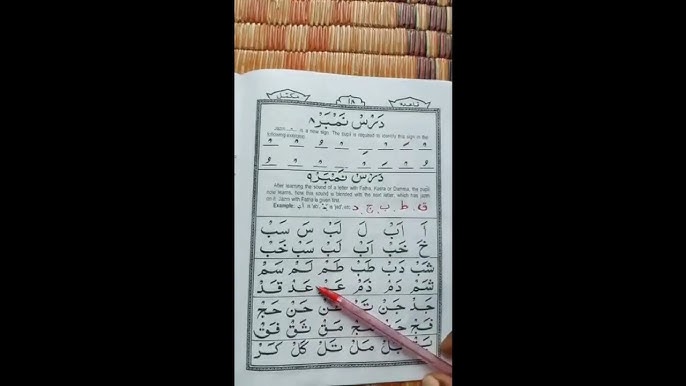 قاعدہ ١٨ مكمّل
دَرْس نَمْبَرْ ٨
Jazm is a new sign. The pupil is required to identify this sign in the
following exercise.
دَرْس نَمْبَرْ ٩
After learning the sound of a letter with Fatha, Kasra or Damma, the pupil
now learns, how this sound is blended with the next letter, which has jazm
on it. Jazm with Fatha is given first.
Example: is 'ab', is 'jad', etc. ق ط ب ج د
اَ اَبْ لَ لَبْ سَ سَبْ
خَ خَبْ اَبْ لَبْ سَبْ خَبْ
شَبْ دَبْ طَبْ طَمْ لَمْ سَمْ
شَمْ دَمْ ذَمْ عَدْ قَدْ
جَدْ جَنْ حَنْ حَجْ
فَجْ مَقْ ثَقْ فَقْ
مَلْ تَلْ كَلْ كَرْ